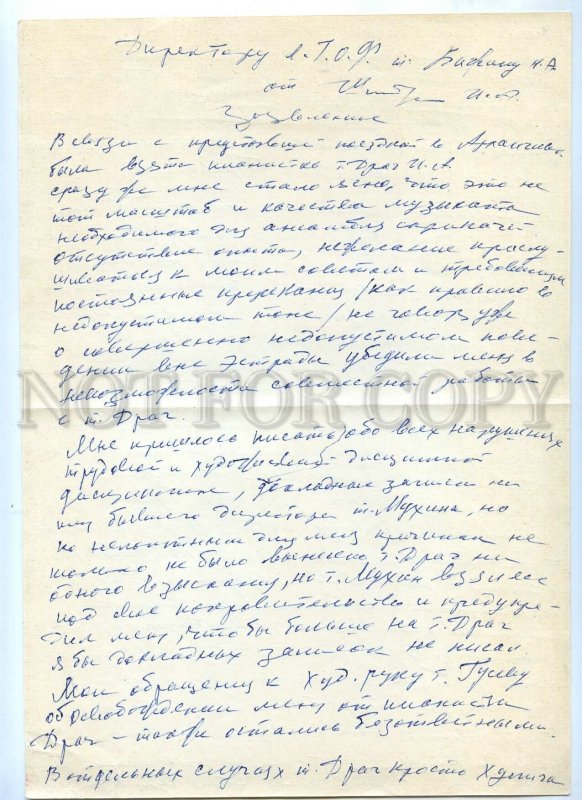 Директору Л.Г.О.Ф. т.
от
Заявление
В связи с предстоявшей поездкой во
была взята пианистка т. Драч И.А.
сразу же мне стало ясно, что это не
тот масштаб и качества музыканта
необходимого для ансамбля скрипачей
отсутствие опыта, нежелание прислу-
шиваться к моим советам и требованиям
постоянные пререкания /как правило во
недопустимом тоне/ не говоря уже
о совершенно недопустимом пове-
дении вне эстрады убедили меня в
невозможности совместной работы
с т. Драч.
Мне пришлось писать обо всех нарушениях
трудовой и художественной дисциплиной
дисциплине, докладные записки на
имя бывшего директора т. Мухина, но
по непонятным для меня причинам не
только не было вынесено т. Драч ни
одного взыскания, но т. Мухин взял ее
под свое покровительство и предупре-
дил меня, чтобы больше на т. Драч
я бы докладных записок не писал.
Мои обращения к худ. руку т. Гусеву
об освобождении меня от пианиста
Драч – также остались безответными.
В отдельных случаях т. Драч просто
NOT FOR COPY